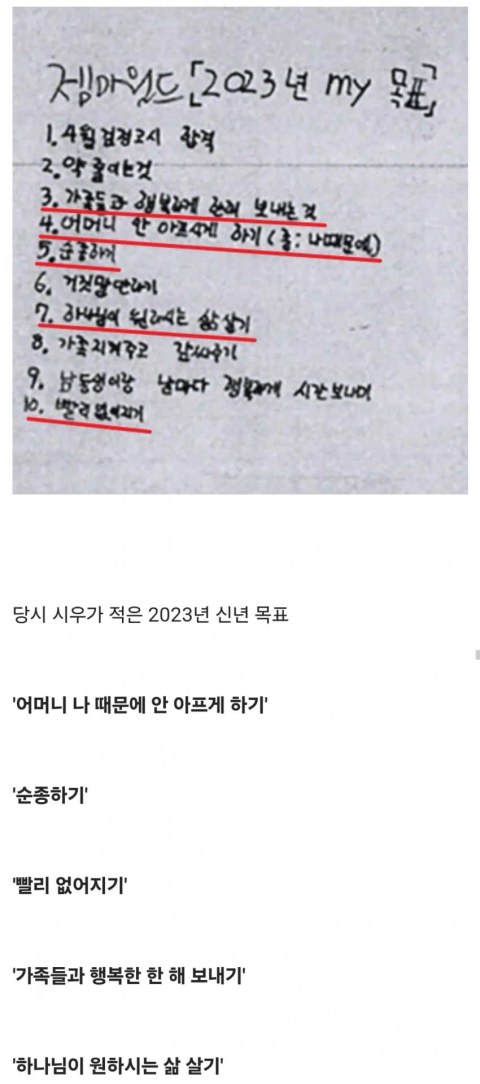 젬마월드「2023년 my 목표」
1. 4월 검정고시 합격
2. 약 줄이는것
3. 가족들과 행복하게 한해 보내는것
4. 어머니 안 아프시게 하기 (좀; 나때문에)
5. 순종하기
6. 거짓말 안하기
7. 하나님이 원하시는 삶 살기
8. 가족 지켜주고 감싸주기
9. 남동생이랑 날마다 행복하게 시간보내며
10. 빨리 없어지기
당시 시우가 적은 2023년 신년 목표
'어머니 나 때문에 안 아프게 하기'
'순종하기'
'빨리 없어지기'
'가족들과 행복한 한 해 보내기'
'하나님이 원하시는 삶 살기'